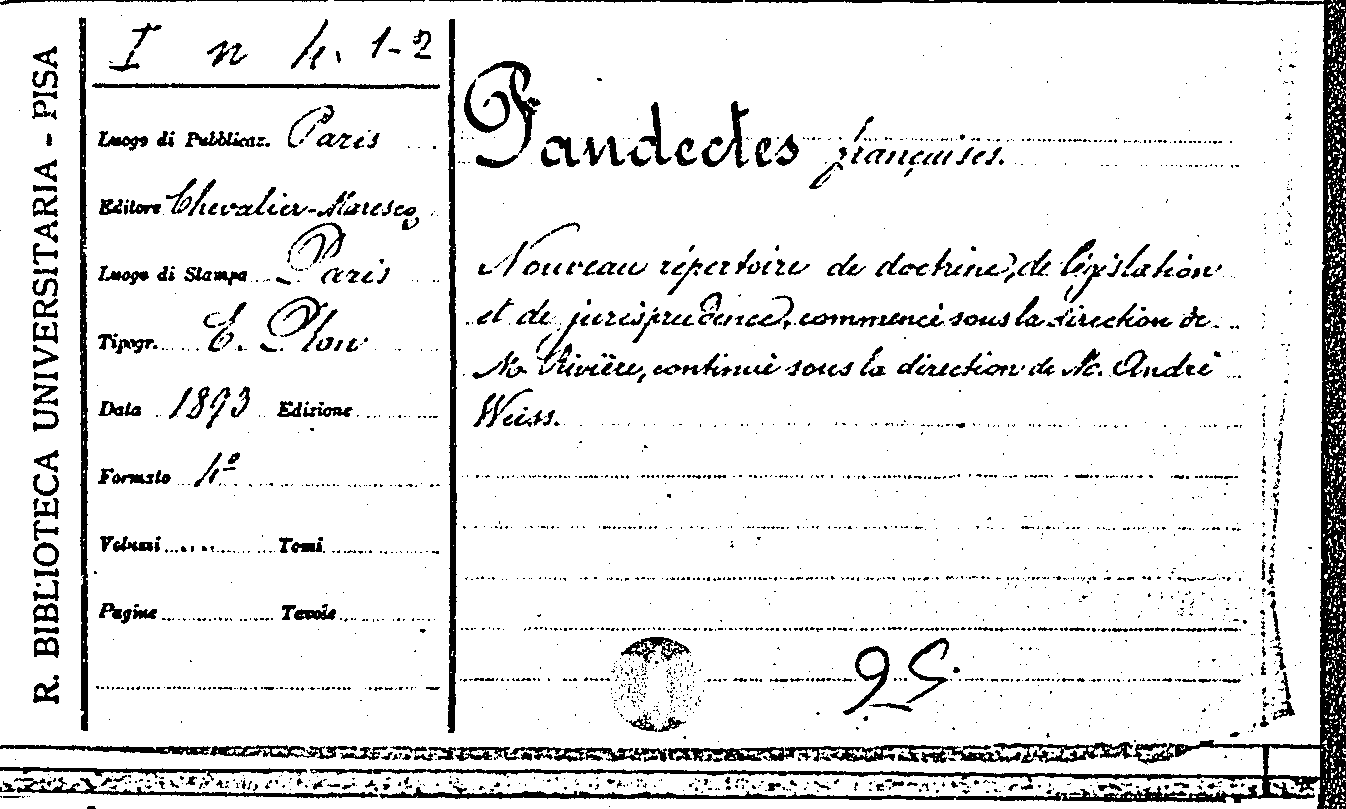 R. BIBLIOTECA UNIVERSITARIA - PISA
I n 4. 1-2
Luogo di Pubblicaz. Paris
Editore Chevalier-Marescq
Luogo di Stampa Paris
Tipogr. E. Plon
Data 1893 Edizione
Formato 4º
Volumi .... Tomi
Pagine Tavole
Pandectes françaises.
Nouveau répertoire de doctrine, de législation
et de jurisprudence, commencé sous la direction de
M. Rivière, continué sous la direction de M. André
Weiss.